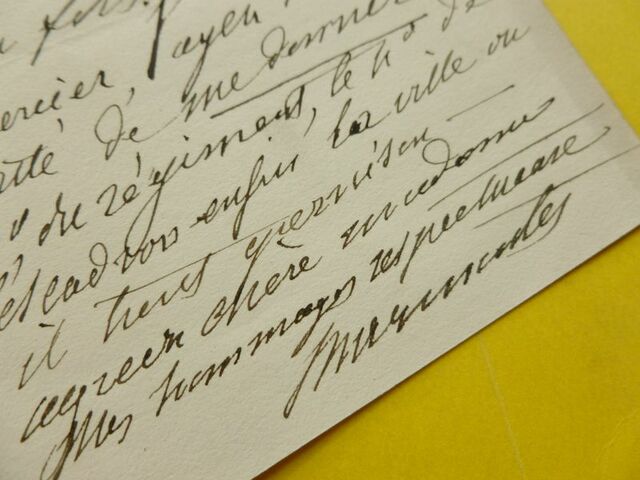 ayez
de me donner
du régiment, le n° de
l'escadron enfin la ville ou
il tient garnison —
agréer chère madame
Mes hommages respectueuse